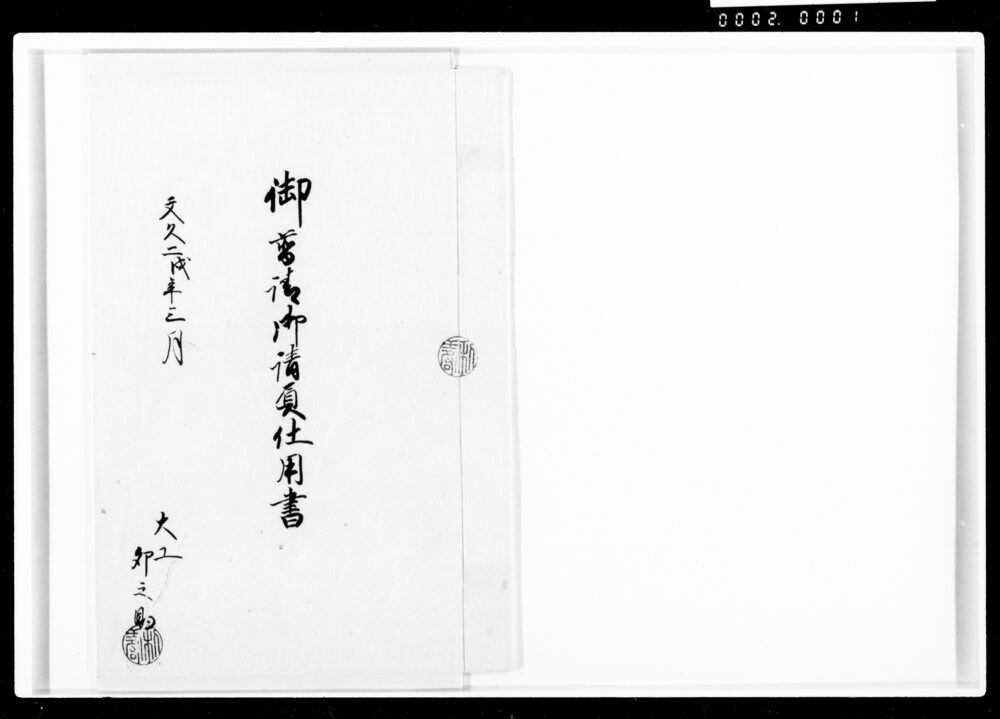 0002. 0001
御普請御請負仕用書
文久二戌年三月
大工
卯之助